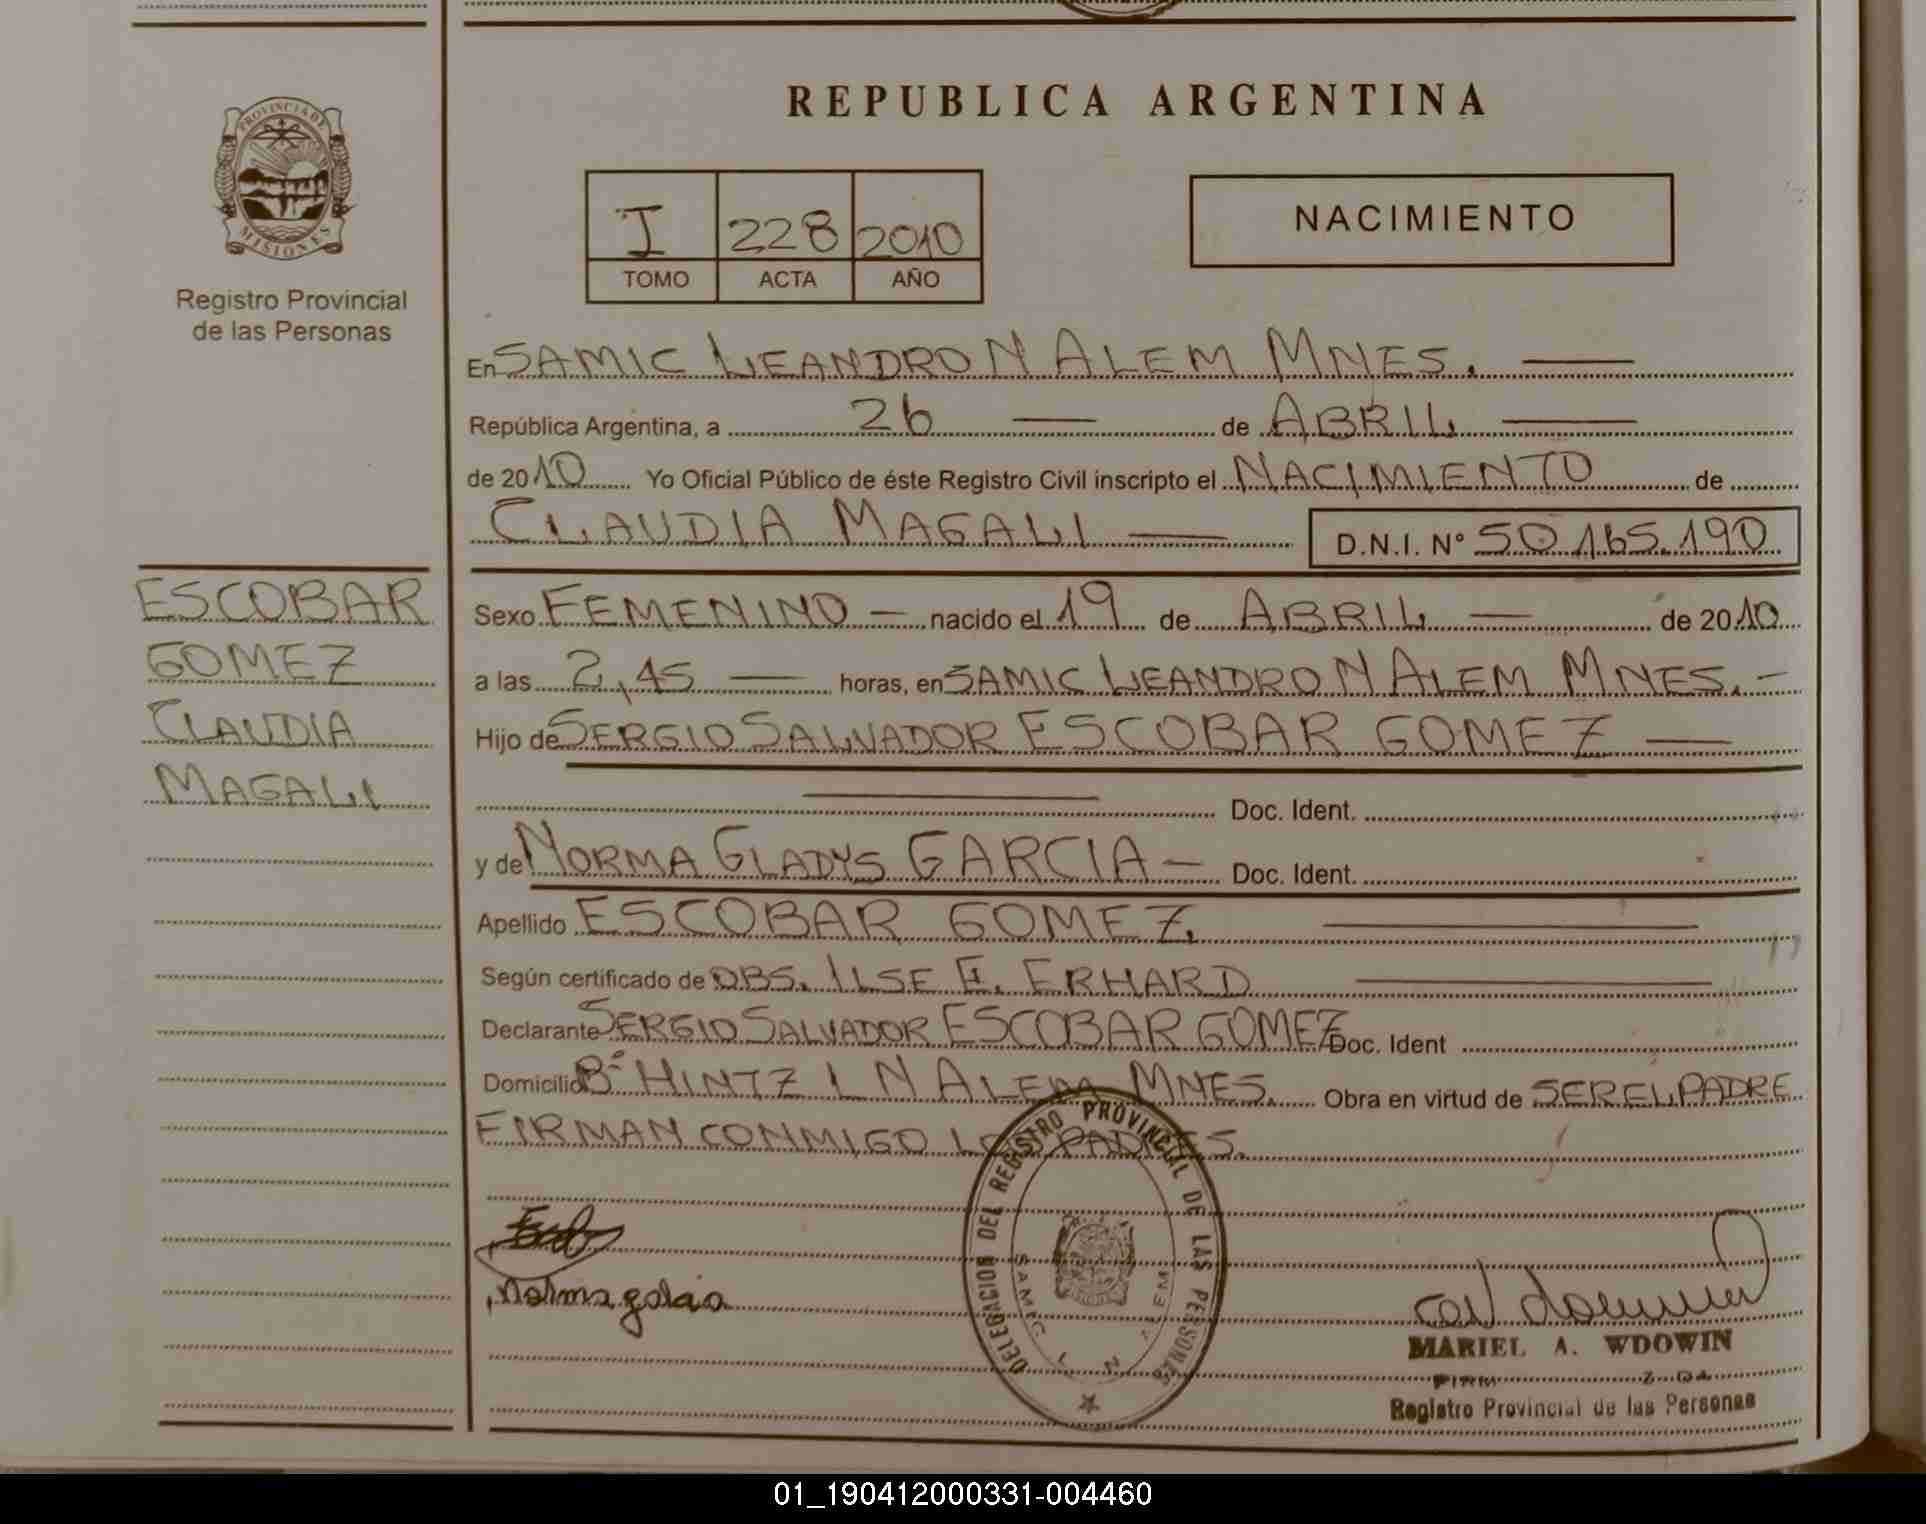 REPUBLICA ARGENTINA
PROVINCIA DE MISIONES
Registro Provincial
de las Personas
I 228 2010
TOMO ACTA AÑO
NACIMIENTO
En SAMIC LEANDRO N ALEM MNES.
República Argentina, a 26 de ABRIL
de 2010 Yo Oficial Público de éste Registro Civil inscripto el NACIMIENTO de
CLAUDIA MAGALI D.N.I. Nº 50.165.190
ESCOBAR
GOMEZ
CLAUDIA
MAGALI
Sexo FEMENINO nacido el 19 de ABRIL de 2010
a las 2,45 horas, en SAMIC LEANDRO N ALEM MNES.
Hijo de SERGIO SALVADOR ESCOBAR GOMEZ
Doc. Ident.
y de NORMA GLADYS GARCIA Doc. Ident.
Apellido ESCOBAR GOMEZ.
Según certificado de OBS. ILSE E. ERHARD
Declarante SERGIO SALVADOR ESCOBAR GOMEZ Doc. Ident
Domicilio Bº HINTZ L N ALEM MNES. Obra en virtud de SER EL PADRE
FIRMAN CONMIGO LOS PADRES.
DELEGACION DEL REGISTRO PROVINCIAL DE LAS PERSONAS
SAMIC L. N. ALEM
MARIEL A. WDOWIN
Registro Provincial de las Personas
01_190412000331-004460